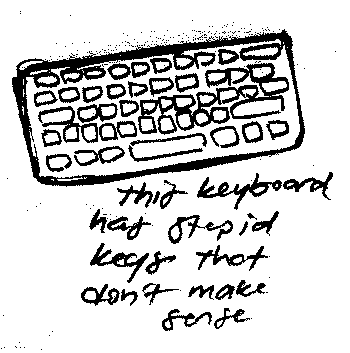 this keyboard
has stupid
keys that
don't make
sense